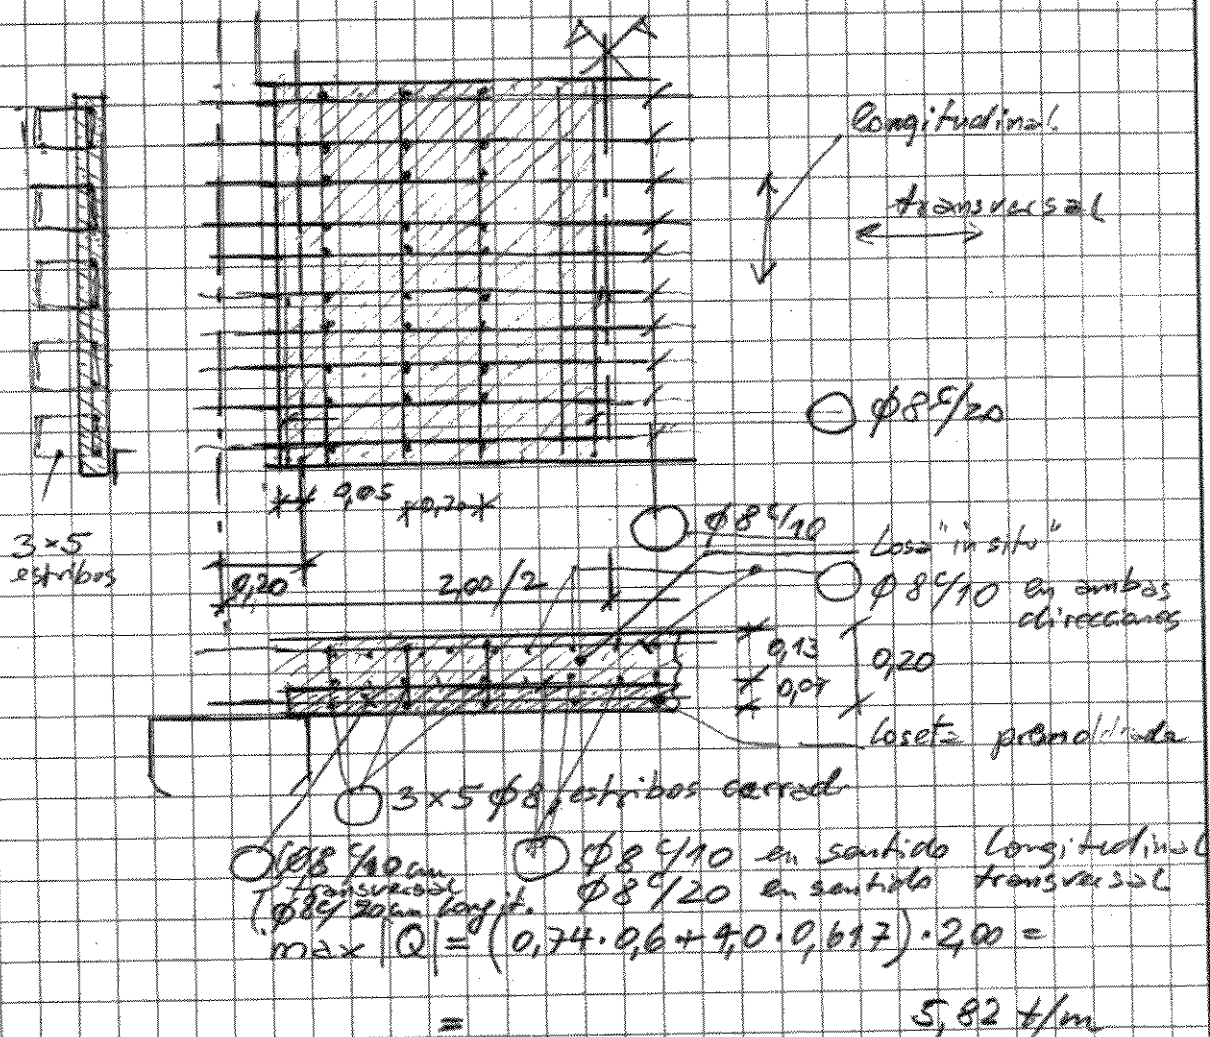 longitudinal
transversal
φ8 c/20
0,05
0,20
φ8 c/10
3×5
estribos
Losa "in situ"
0,20
2,00/2
φ8 c/10 en ambas
direcciones
0,13
0,20
0,07
loseta premoldeada
3×5 φ8, estribos cerrad
φ8 c/10 cm
transversal
φ8 c/20 cm longit.
φ8 c/10 en sentido longitudinal
φ8 c/20 en sentido transversal
max |Q| = (0,74·0,6 + 4,0·0,617)·2,00 =
= 5,82 t/m